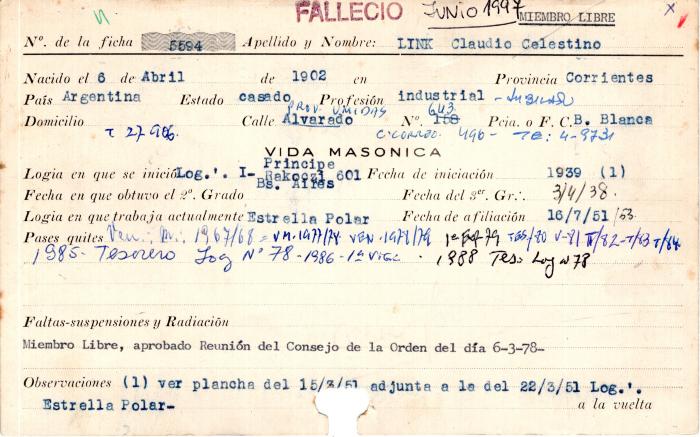 FALLECIO JUNIO 1997 MIEMBRO LIBRE
Nº. de la ficha 5594 Apellido y Nombre: LINK Claudio Celestino
Nacido el 6 de Abril de 1902 en Provincia Corrientes
País Argentina Estado casado Profesión industrial - JUBILADO
PROV. UNIDAS 643
Domicilio Calle Alvarado Nº. 168 Pcia. o F. C. B. Blanca
T 27906 C. CORREO. 496- TE: 4-9731
VIDA MASONICA
Logia en que se inició Log.'. I- Principe Rakoczi 601 Bs. Aires Fecha de iniciación 1939 (1)
Fecha en que obtuvo el 2º. Grado Fecha del 3er. Gr.'. 3/4/38.
Logia en que trabaja actualmente Estrella Polar Fecha de afiliación 16/7/51/53
Pases quites Ven.: M.: 1967/68 = VM. 1977/78 VEN. 1978/79 TES/80 V-81 T/82-T/83 T/84
1985- Tesorero Log Nº 78 -1986- 1ª VIGL. · 1988 Tes. Log n 78
Faltas-suspensiones y Radiación
Miembro Libre, aprobado Reunión del Consejo de la Orden del día 6-3-78-
Observaciones (1) ver plancha del 15/3/51 adjunta a la del 22/3/51 Log.'.
Estrella Polar- a la vuelta